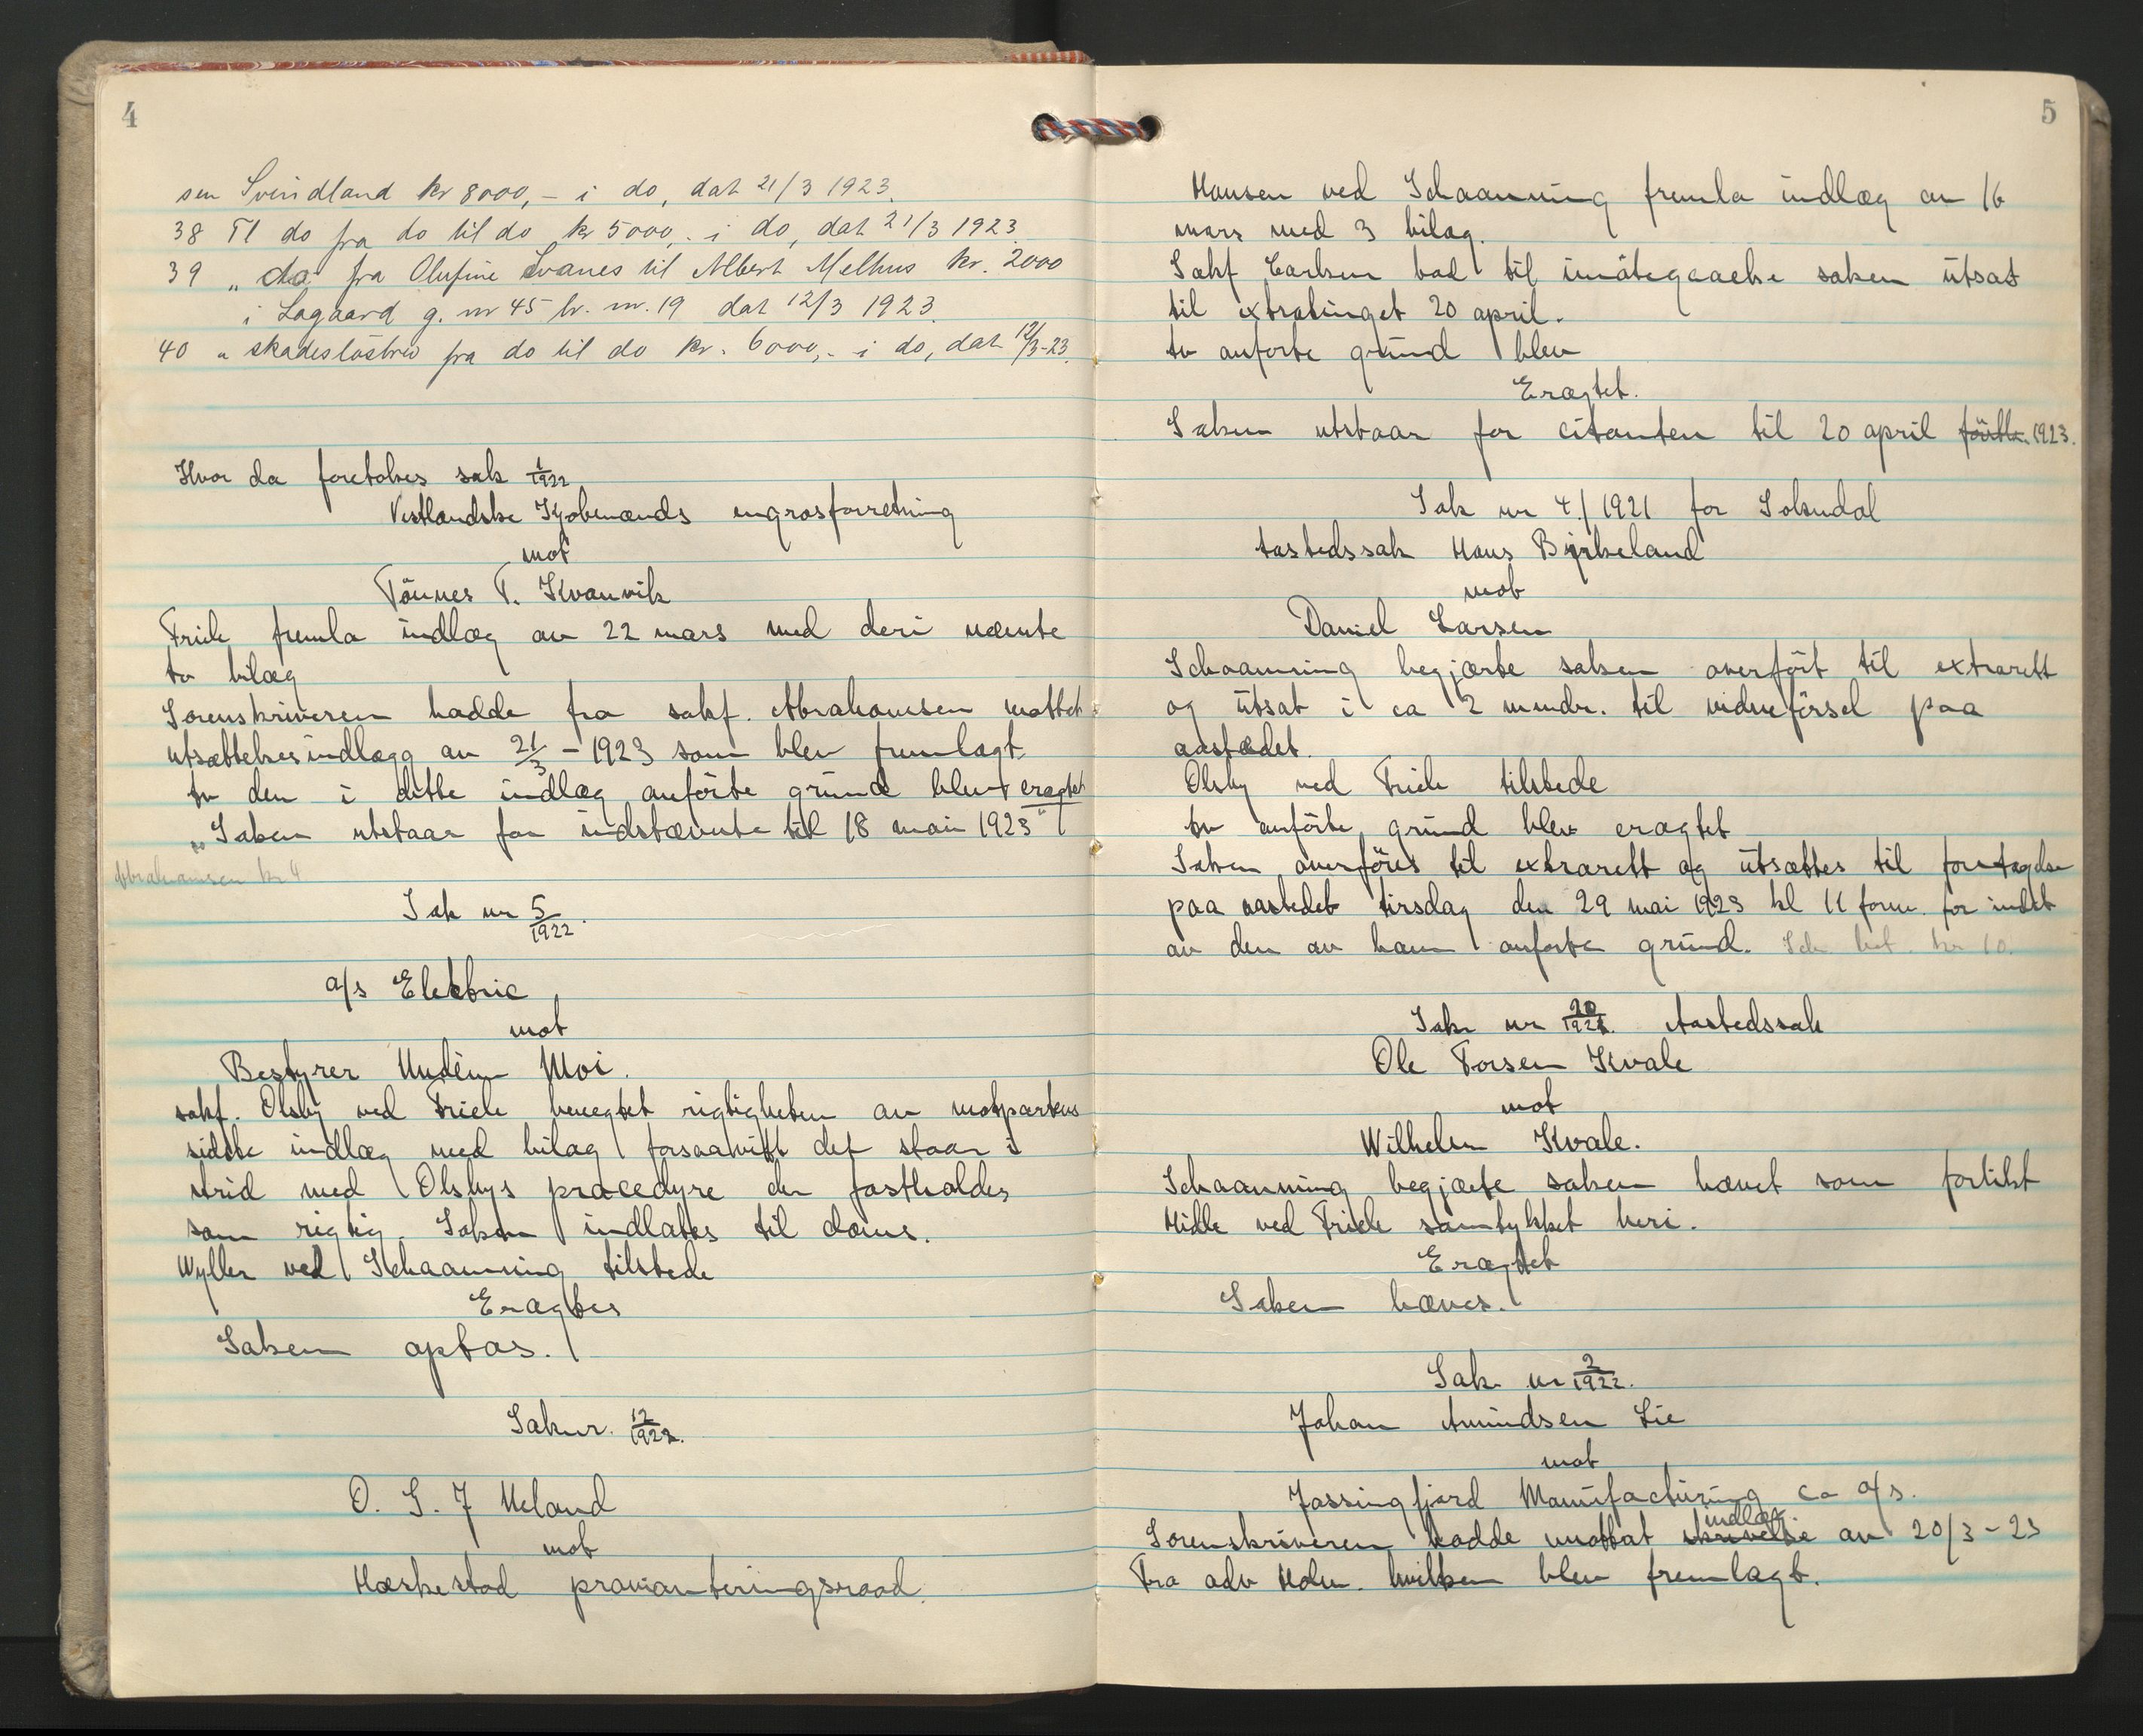 4
sen Svindland kr 8000,- i do, dat 21/3 1923.
38 Tl do fra do til do kr 5000,- i do, dat 21/3 1923.
39 „ do fra Olufine Svanes til Albert Melhus kr. 2000
i Lagaard g. nr 45 br. nr. 19 dat 12/3 1923.
40 „ skadeslösbrev fra do til do kr. 6000,- i do, dat 12/3-23.
Hvor da foretokes sak 1/1922
Vestlandske Kjøbmænds engrosforretning
mot
Tönnes T. Kvanvik
Friele fremla indlæg av 22 mars med deri nævnte
to bilag
Sorenskriveren hadde fra sakf. Abrahamsen mottat
utsættelsesindlægg av 21/3 - 1923 som blev fremlagt
av den i dette indlæg anförte grund blev eragtet
„Saken utstaar for indstævnte til 18 mai 1923"
Abrahamsen kr 4
Sak nr 5/1922.
a/s Elektric
mot
Bestyrer Undèm Moi.
sakf. Olsby ved Friele benegtet rigtigheten av motpartens
sidste indlæg med bilag forsaavitt det staar i
strid med Olsbys procedyre der fastholdes
som rigtig. Saken indlates til doms.
Wyller ved Schaanning tilstede
Eragtes
Saken optas.
Saknr. 12/1922.
O. G. J Ueland
mot
Hæskestad provianteringsraad.
5
Hansen ved Schaanning fremla indlæg av 16
mars med 3 bilag.
Sakf Carlsen bad til imötegaaelse saken utsat
til extratinget 20 april.
av anforte grund blev
Eragtet.
Saken utstaar for citanten til 20 april 1923.
Sak nr 4./1921 for Sokndal
aastedssak Hans Birkeland
mot
Daniel Larsen
Schaanning begjærte saken overfört til extrarett
og utsat i ca 2 mndr. til vidneförsel paa
aastedet.
Olsby ved Friele tilstede
av anförte grund blev eragtet
Saken overföres til extrarett og utsættes til foretagelse
paa aastedet tirsdag den 29 mai 1923 kl 11 form. for indst
av den av ham anforte grund. Sch bet. kr 10.
Sak nr 20/1921. Aastedssak
Ole Torsen Kvale
mot
Wilhelm Kvale.
Schaanning begjærte saken hævet som forlikt
Midle ved Friele samtykket heri.
Eragtet
Saken hæves.
Sak nr 2/1922.
Johan Amundsen Lie
mot
Jossingfjord Manufacturing co a/s.
indlæg
Sorenskriveren hadde mottat skrivelse av 20/3-23
Fra adv Holm. hvilken blev fremlagt.